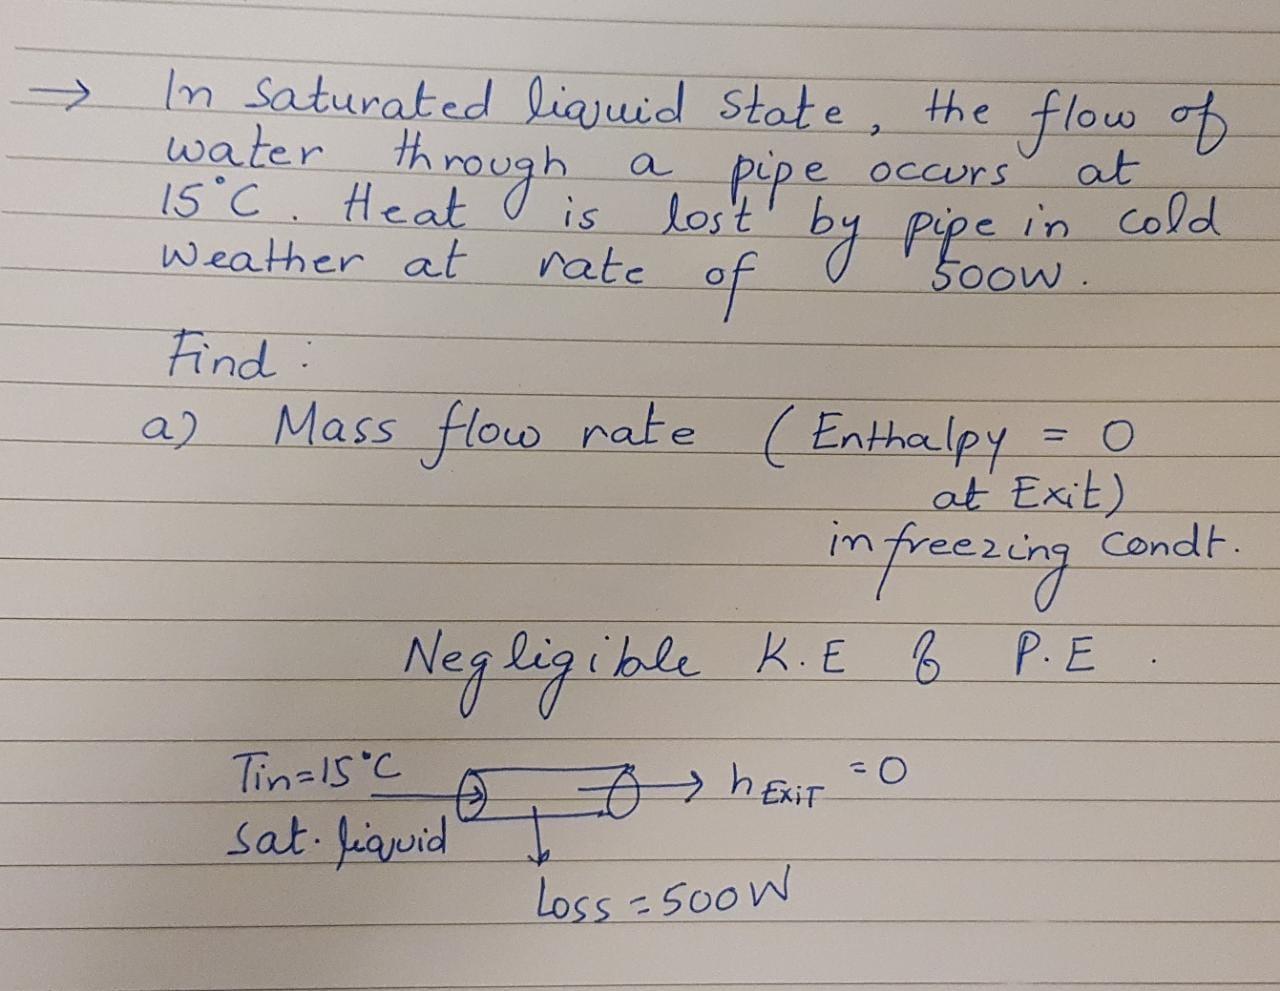 → In saturated liquid state, the flow of
water through a pipe occurs at
15°C. Heat is lost by pipe in cold
weather at rate of 500W.
Find:
a) Mass flow rate (Enthalpy = 0
at Exit)
in freezing condt.
Negligible K.E & P.E.
Tin=15°C
sat. liquid
hEXIT =0
Loss = 500W